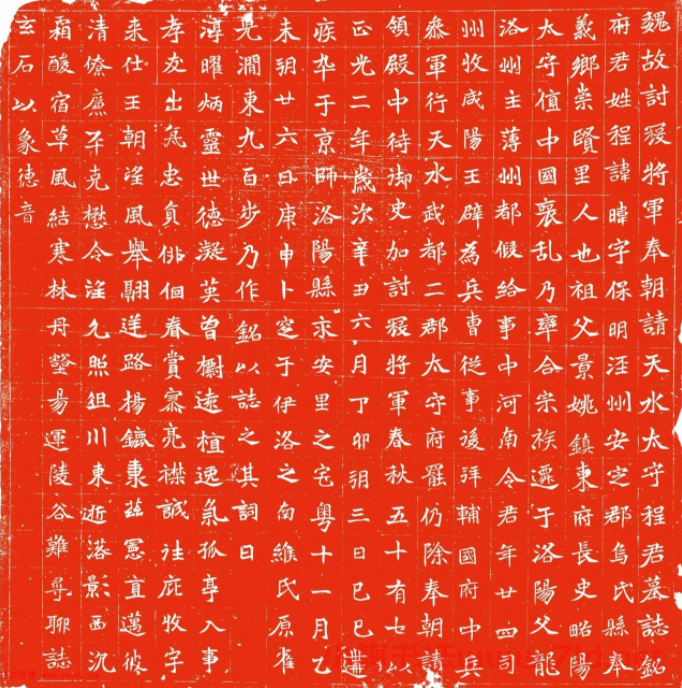 魏故討寇將軍奉朝請天水太守程君墓誌銘
府君姓程諱暐字保明涇州安定郡烏氏縣奉
義鄉崇賢里人也祖父景姚鎮東府長史略陽
太守值中國衰乱乃率合宗族遷于洛陽父龍
洛州主薄州都假給事中河南令君年廿四司
州牧咸陽王辟為兵曹從事後拜輔國府中兵
參軍行天水武都二郡太守府罷仍除奉朝請
領殿中侍御史加討寇將軍春秋五十有七以
正光二年歲次辛丑六月丁卯朔三日己巳遘
疾卒于京師洛陽縣永安里之宅粵十一月乙
未朔廿六日庚申卜窆于伊洛之南維氏原雀
光澗東九百步乃作銘以誌之其詞曰
淳曜炳靈世德凝英曾櫚遠植逸氣孤亭入事
孝友出忠貞俳佪眷賞寮亮襟誠往庇牧字
来仕王朝望風舉翮送路揚鑣秉茲憲直邁彼
清僚廉平克懋令望允照俎川東逝落影西沉
霜酸宿草風結寒林丹壑易運陵谷難尋聊誌
玄石以象德音